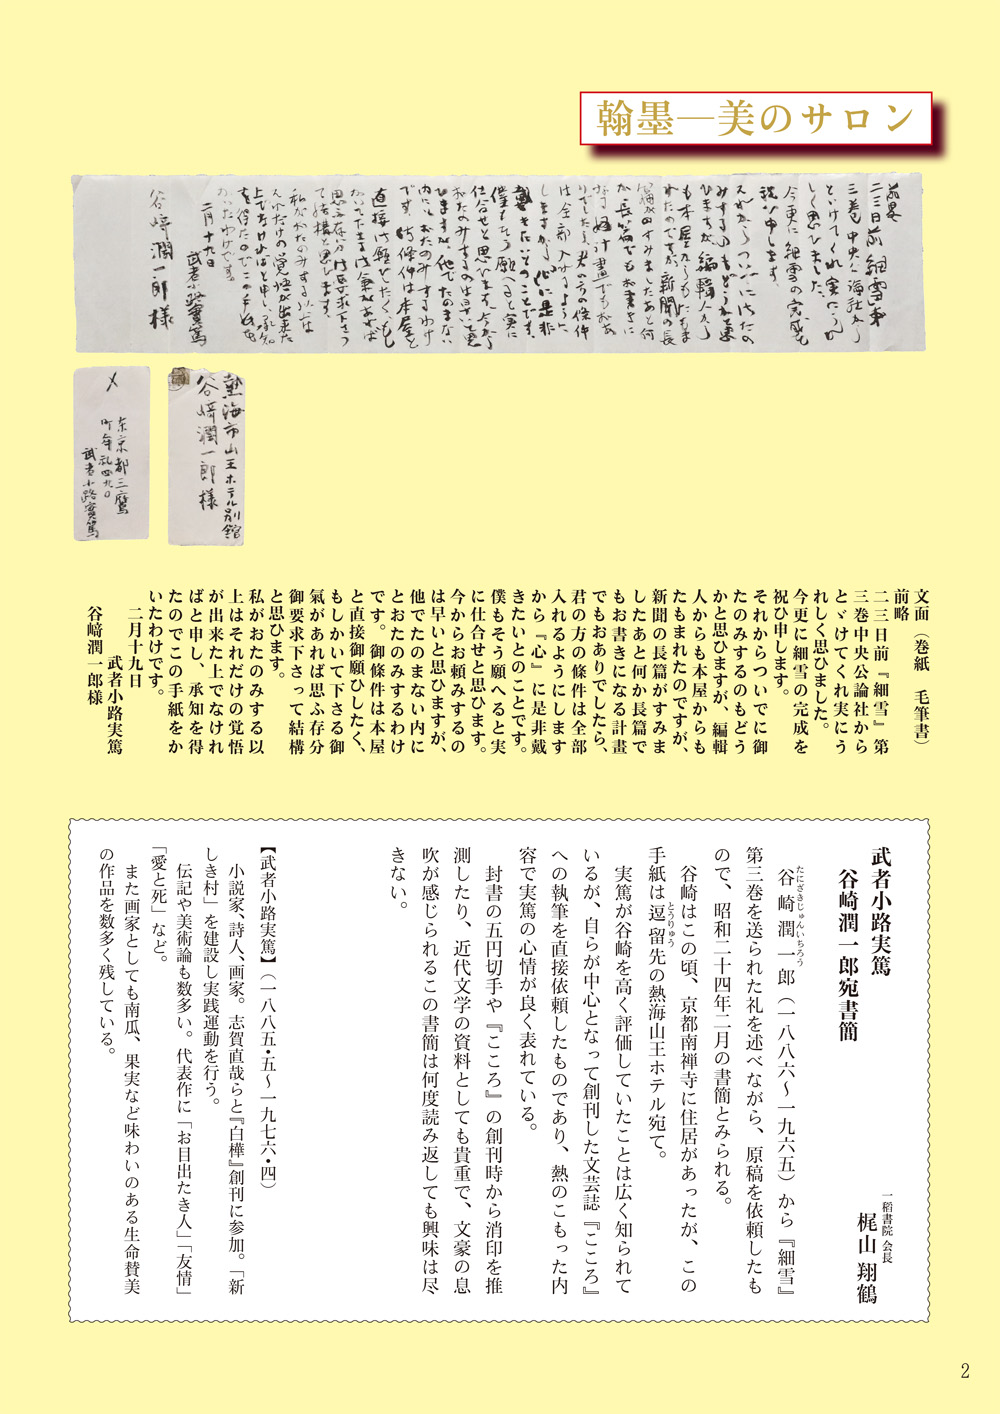 翰墨―美のサロン
前略
二三日前細雪第
三巻中央公論社から
とゞけてくれ実にうれ
しく思ひました。
今更に細雪の完成を
祝ひ申します。
それからついでに御たの
みするのもどうかと思
ひますが、編輯人から
も本屋からもたのま
れたのですが、新聞の長
篇がすみましたあと何
か長篇でもお書きに
なる計畫でもおあ
りでしたら、君の方の條件
は全部入れるように
しますから『心』に是非
戴きたいとのことです。
僕もそう願へると実に
仕合せと思ひます。今から
お頼みするのは早いと思
ひますが、他でたのまない
内にとおたのみするわけ
です。御條件は本屋と
直接御願ひしたく、もし
かいて下さる御氣があれば
思ふ存分御要求下さっ
て結構と思ひます。
私がおたのみする以上は
それだけの覚悟が出来た
上でなければと申し、承知
を得たのでこの手紙を
かいたわけです。
二月十九日
武者小路實篤
谷﨑潤一郎様
熱海市山王ホテル別館
谷﨑潤一郎様
〆
東京都三鷹
町牟礼四九〇
武者小路實篤
文面（巻紙　毛筆書）
前略
二三日前『細雪』第
三巻中央公論社から
とゞけてくれ実にう
れしく思ひました。
今更に細雪の完成を
祝ひ申します。
それからついでに御
たのみするのもどう
かと思ひますが、編輯
人からも本屋からも
たもまれたのですが、
新聞の長篇がすみま
したあと何か長篇で
もお書きになる計畫
でもおありでしたら、
君の方の條件は全部
入れるようにします
から『心』に是非戴
きたいとのことです。
僕もそう願へると実
に仕合せと思ひます。
今からお頼みするの
は早いと思ひますが、
他でたのまない内に
とおたのみするわけ
です。御條件は本屋
と直接御願ひしたく、
もしかいて下さる御
氣があれば思ふ存分
御要求下さって結構
と思ひます。
私がおたのみする以
上はそれだけの覚悟
が出来た上でなけれ
ばと申し、承知を得
たのでこの手紙をか
いたわけです。
二月十九日
武者小路実篤
谷﨑潤一郎様
武者小路実篤
谷崎潤一郎宛書簡
一稲書院 会長
梶山 翔鶴
たにざきじゅんいちろう
谷崎潤一郎（一八八六～一九六五）から『細雪』
第三巻を送られた礼を述べながら、原稿を依頼したも
ので、昭和二十四年二月の書簡とみられる。
谷崎はこの頃、京都南禅寺に住居があったが、この
とうりゅう
手紙は逗留先の熱海山王ホテル宛て。
実篤が谷崎を高く評価していたことは広く知られて
いるが、自らが中心となって創刊した文芸誌『こころ』
への執筆を直接依頼したものであり、熱のこもった内
容で実篤の心情が良く表れている。
封書の五円切手や『こころ』の創刊時から消印を推
測したり、近代文学の資料としても貴重で、文豪の息
吹が感じられるこの書簡は何度読み返しても興味は尽
きない。
【武者小路実篤】（一八八五・五～一九七六・四）
小説家、詩人、画家。志賀直哉らと『白樺』創刊に参加。「新
しき村」を建設し実践運動を行う。
伝記や美術論も数多い。代表作に「お目出たき人」「友情」
「愛と死」など。
また画家としても南瓜、果実など味わいのある生命賛美
の作品を数多く残している。
2